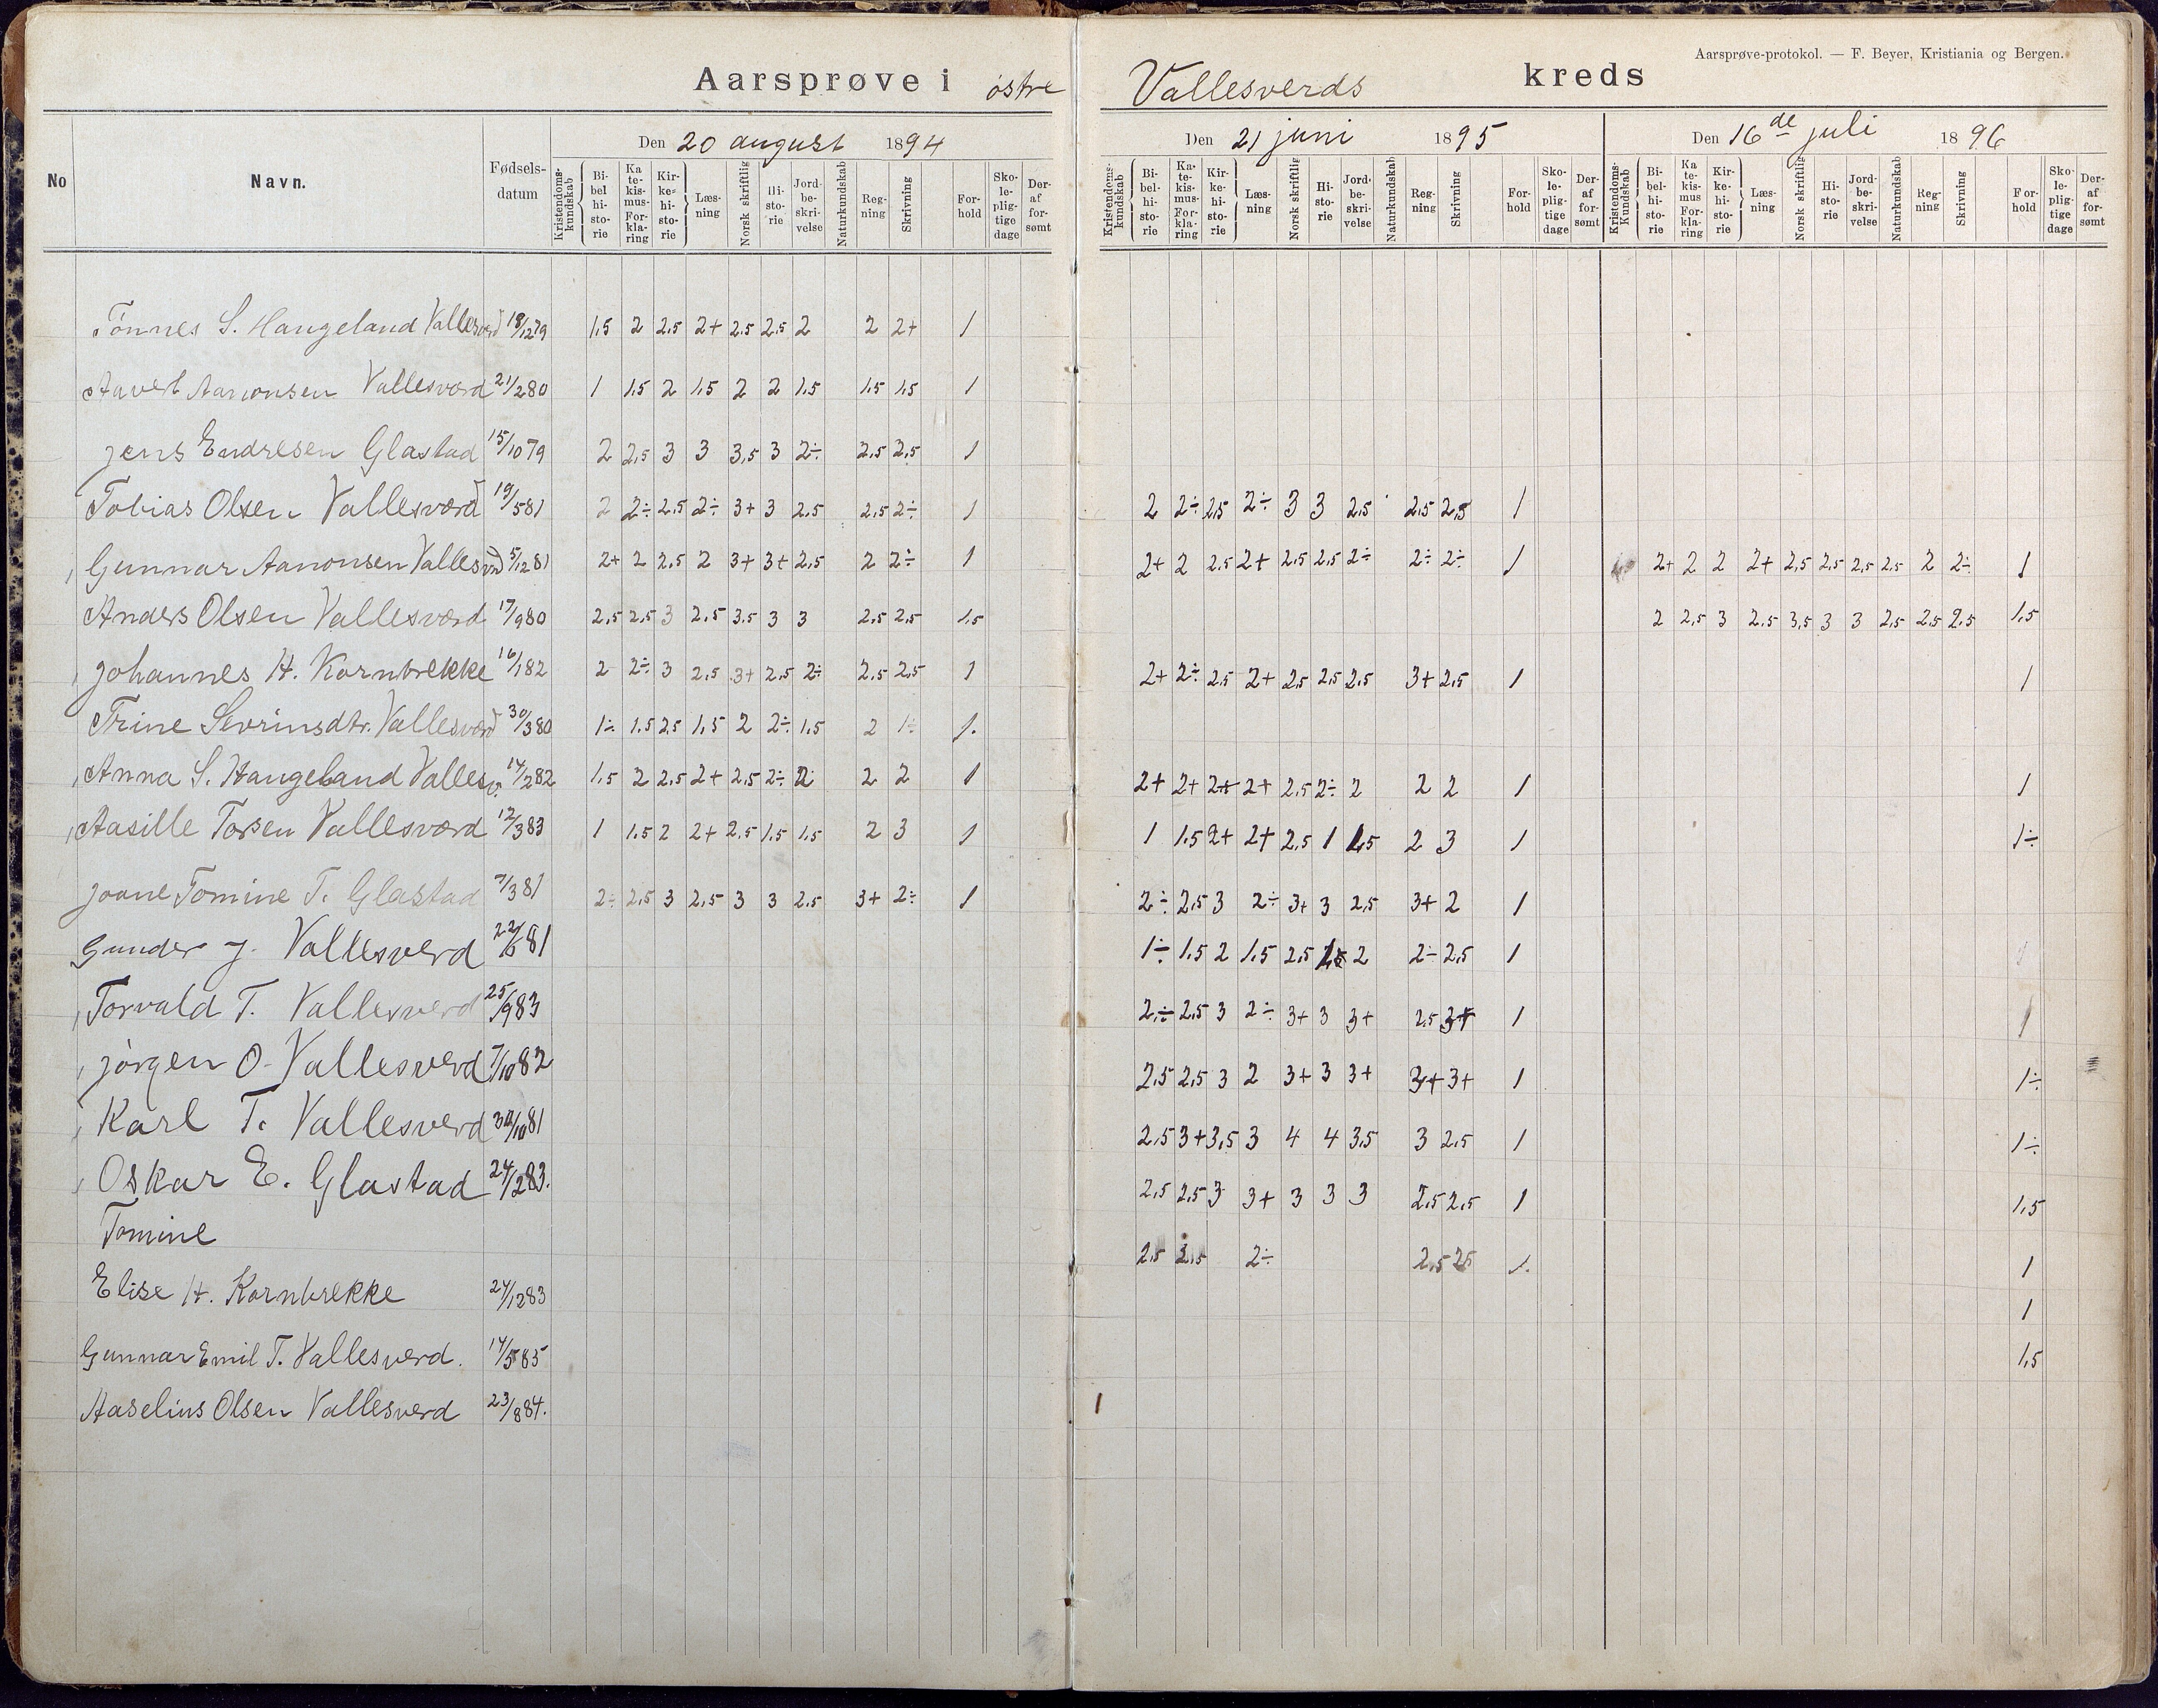 Aarsprøve-protokol. — F. Beyer, Kristiania og Bergen.
Aarsprøve i østre Vallesverds kreds
Den 20 august 1894 Den 21 juni 1895 Den 16de juli 1896
No Navn. Fødsels-datum Kristendoms-kundskab Bi-bel hi-sto-rie Ka te-kis-mus-For-kla-ring Kir-ke-hi-sto-rie Læs-ning Norsk skriftlig Hi-sto-rie Jord-be-skri-velse Naturkundskab Reg-ning Skrivning For-hold Sko-le-plig-tige dage Der-af for-sømt Kristendoms-kundskab Bi-bel-hi-sto-rie Ka-te-kis-mus-For-kla-ring Kir-ke-hi-sto-rie Læs-ning Norsk skriftlig Hi-sto-rie Jord-be-skri-velse Naturkundskab Reg-ning Skrivning For-hold Sko-le-plig-tige dage Der-af for-sømt Kristendoms-Kundskab Bi-bel-hi-sto-rie Ka te-kis-mus For-kla-ring Kir-ke-hi-sto-rie Læs-ning Norsk skriftlig Hi-sto-rie Jord-be-skri-velse Naturkundskab Reg-ning Skrivning For-hold Sko-le-plig-tige dage Der-af for-sømt
Tönnes S. Haugeland Vallesverd 18/1279 1,5 2 2,5 2+ 2,5 2,5 2 2 2+ 1
Aanonsen Vallesværd 21/280 1 1,5 2 1,5 2 2 1,5 1,5 1,5 1
Jens Endresen Glastad 15/1079 2 2,5 3 3 3,5 3 2÷ 2,5 2,5 1
Tobias Olsen Vallesværd 19/581 2 2÷ 2,5 2÷ 3+ 3 2,5 2,5 2÷ 1 2 2÷ 2,5 2÷ 3 3 2,5 2,5 2,5 1
Gunnar Aanonsen Vallesvrd 5/1281 2+ 2 2,5 2 3+ 3+ 2,5 2 2÷ 1 2+ 2 2,5 2+ 2,5 2,5 2÷ 2÷ 2÷ 1 2+ 2 2 2+ 2,5 2,5 2,5 2,5 2 2÷ 1
Anders Olsen Vallesværd 17/980 2,5 2,5 3 2,5 3,5 3 3 2,5 2,5 1,5 2 2,5 3 2,5 3,5 3 3 2,5 2,5 2,5 1,5
Johannes H. Kornbrekke 16/182 2 2÷ 3 2,5 3+ 2,5 2÷ 2,5 2,5 1 2+ 2÷ 2,5 2+ 2,5 2,5 2,5 3+ 2,5 1 1
Trine Sevrinsdtr. Vallesværd 30/380 1÷ 1,5 2,5 1,5 2 2÷ 1,5 2 1÷ 1.
Anna S. Haugeland Vallesv. 14/282 1,5 2 2,5 2+ 2,5 2÷ 2 2 2 1 2+ 2+ 2+ 2+ 2,5 2÷ 2 2 2 1 1
Aasille Torsen Vallesværd 12/383 1 1,5 2 2+ 2,5 1,5 1,5 2 3 1 1 1,5 2+ 2+ 2,5 1 1,5 2 3 1 1÷
Joane Tomine T. Glastad 7/381 2÷ 2,5 3 2,5 3 3 2,5 3+ 2÷ 1 2÷ 2,5 3 2÷ 3+ 3 2,5 3+ 2 1
Gunder J. Vallesverd 22/681 1÷ 1,5 2 1,5 2,5 1,5 2 2÷ 2,5 1
Torvald T. Vallesverd 25/983 2÷ 2,5 3 2÷ 3+ 3 3+ 2,5 3+ 1 1
Jörgen O. Vallesverd 7/1082 2,5 2,5 3 2 3+ 3 3+ 3+ 3+ 1 1÷
Karl T. Vallesverd 30/1081 2,5 3+ 3,5 3 4 4 3,5 3 2,5 1 1÷
Oskar E. Glastad 24/283. 2,5 2,5 3 3+ 3 3 3 2,5 2,5 1 1,5
Tomine 2,5 2,5 2÷ 2,5 2,5 1. 1
Elise H. Kornbrekke 24/1283 1
Gunnar Emil T. Vallesverd. 14/585 1,5
Aaselius Olsen Vallesverd 23/884. 1